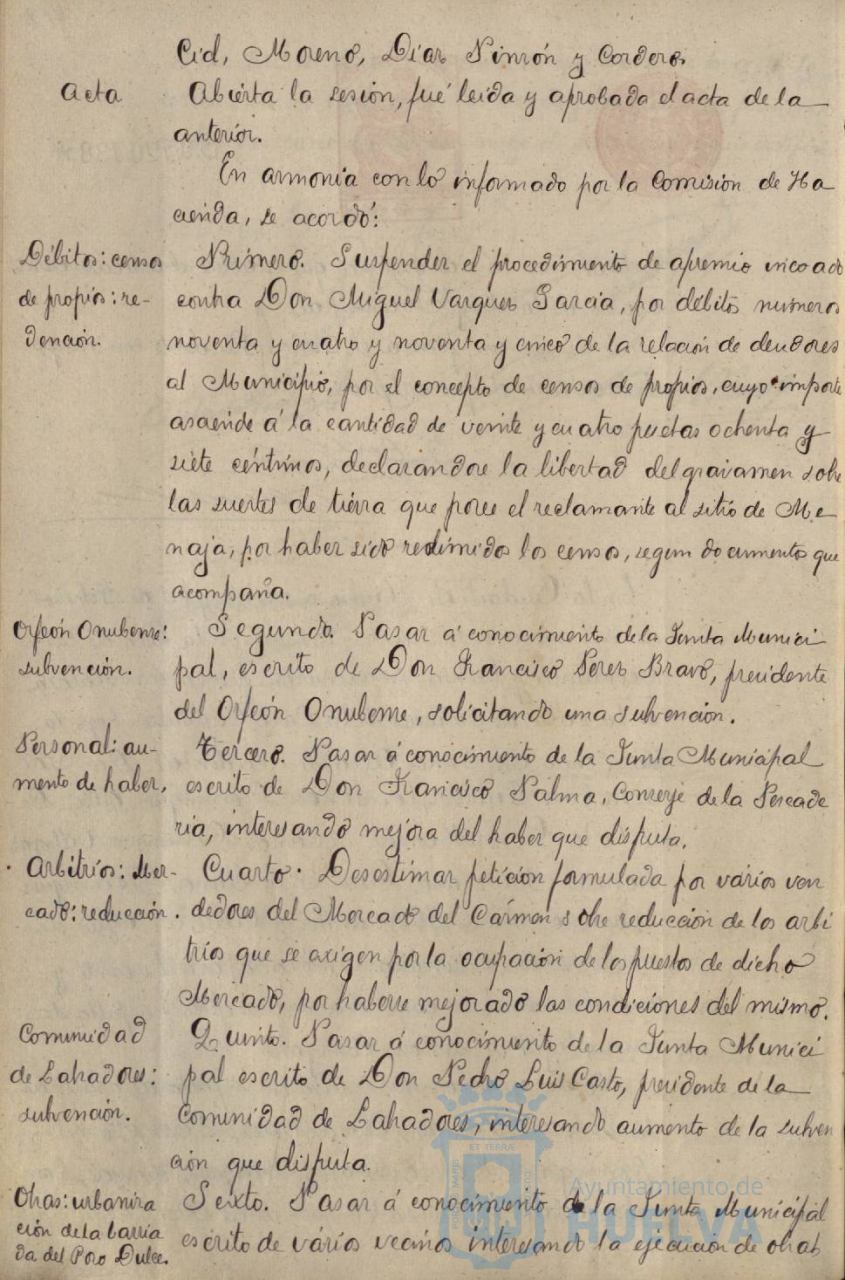 Cid, Moreno, Díaz Pinzón y Cordero.
Acta
Abierta la sesión, fué leida y aprobada el acta de la
anterior.
En armonia con lo informado por la Comisión de Ha
cienda, se acordó:
Débitos: censos
de propios: re-
dención.
Primero. Suspender el procedimiento de apremio incoado
contra Don Miguel Vazquez Garcia, por débitos numeros
noventa y cuatro y noventa y cinco de la relación de deudores
al Municipio, por el concepto de censos de propios, cuyo importe
asciende á la cantidad de veinte y cuatro pesetas ochenta y
siete céntimos, declarandose la libertad del gravamen sobre
las suertes de tierra que posee el reclamante al sitio de Me
naja, por haber sido redimidos los censos, segun documentos que
acompaña.
Orfeón Onubense:
subvención.
Segundo. Pasar á conocimiento de la Junta Munici
pal, escrito de Don Francisco Perez Bravo, presidente
del Orfeón Onubense, solicitando una subvención.
Personal: au-
mento de haber.
Tercero. Pasar á conocimiento de la Junta Municipal
escrito de Don Francisco Palma, Conserje de la Pescade
ria, interesando mejora del haber que disfruta.
Arbitrios: Mer-
cado: reducción.
Cuarto. Desestimar petición formulada por varios ven
dedores del Mercado del Cármen sobre reducción de los arbi
trios que se exigen por la ocupación de los puestos de dicho
Mercado, por haberse mejorado las condiciones del mismo.
Comunidad
de Labradores:
subvención.
Quinto. Pasar á conocimiento de la Junta Munici
pal escrito de Don Pedro Luis Casto, presidente de la
Comunidad de Labradores, interesando aumento de la subven
ción que disfruta.
Obras: urbaniza
ción de la barria
da del Pozo Dulce.
Sexto. Pasar á conocimiento de la Junta Municipal
escrito de vários vecinos interesando la ejecución de obras
Ayuntamiento de
HUELVA